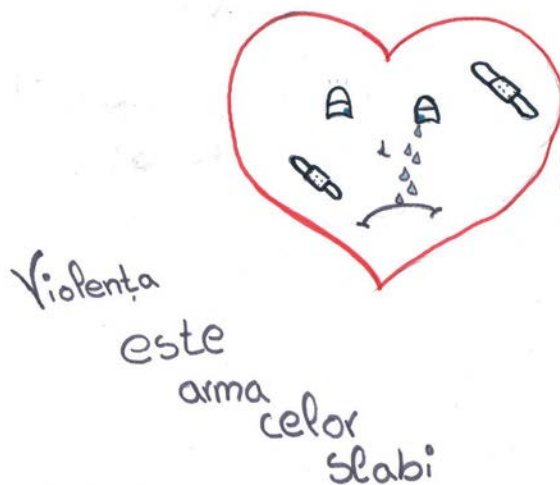 Violența
este
arma
celor
slabi